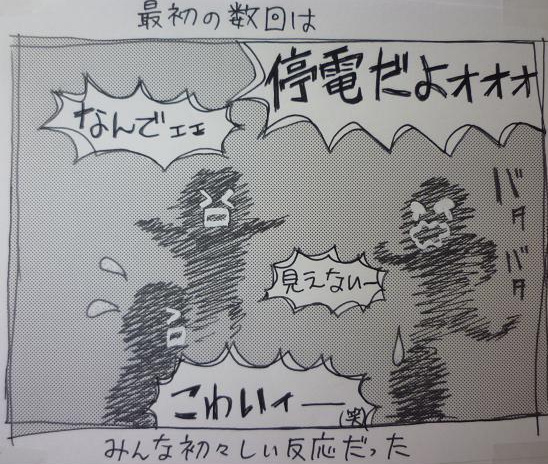 最初の数回は
停電だよォォォ
なんでェェ
バタバタ
見えないー
こわいィー(笑)
みんな初々しい反応だった